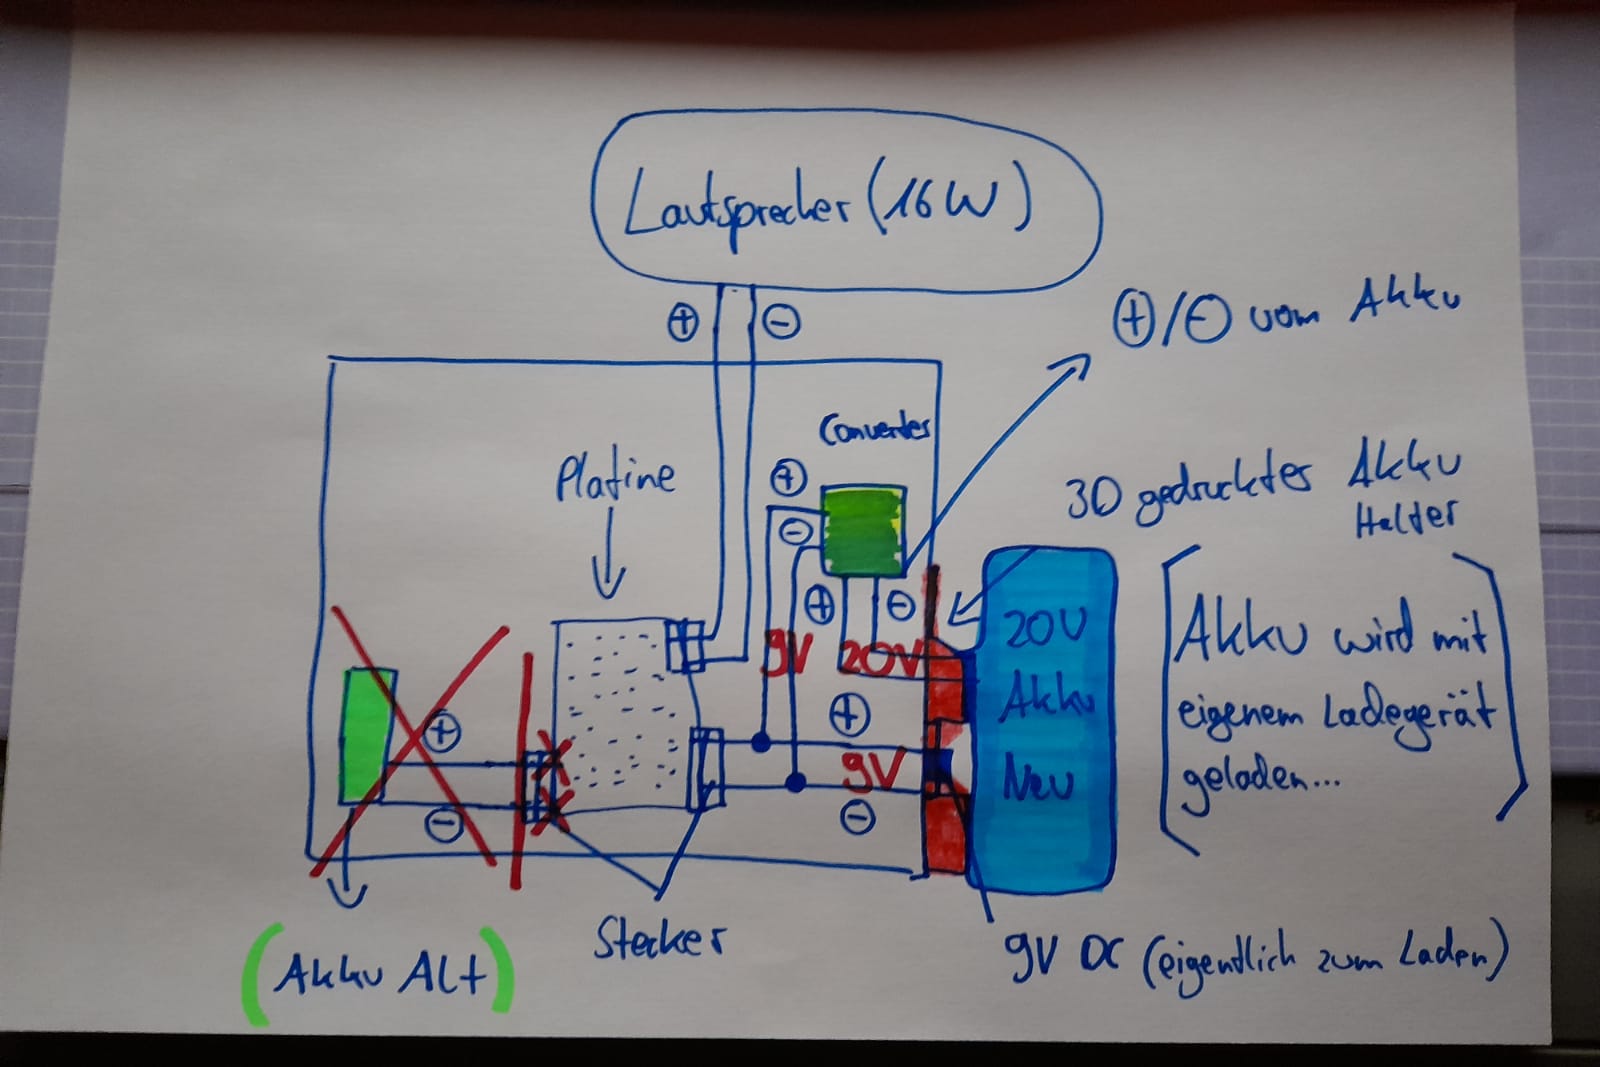 Lautsprecher (16W)
+ -
+/- vom Akku
Converter
Platine
+
-
3D gedrucktes Akku
Halter
+ -
9V 20V
20V
Akku
Neu
[Akku wird mit
eigenem Ladegerät
geladen...]
+
+
9V
-
-
Stecker
(Akku Alt)
9V DC (eigentlich zum Laden)